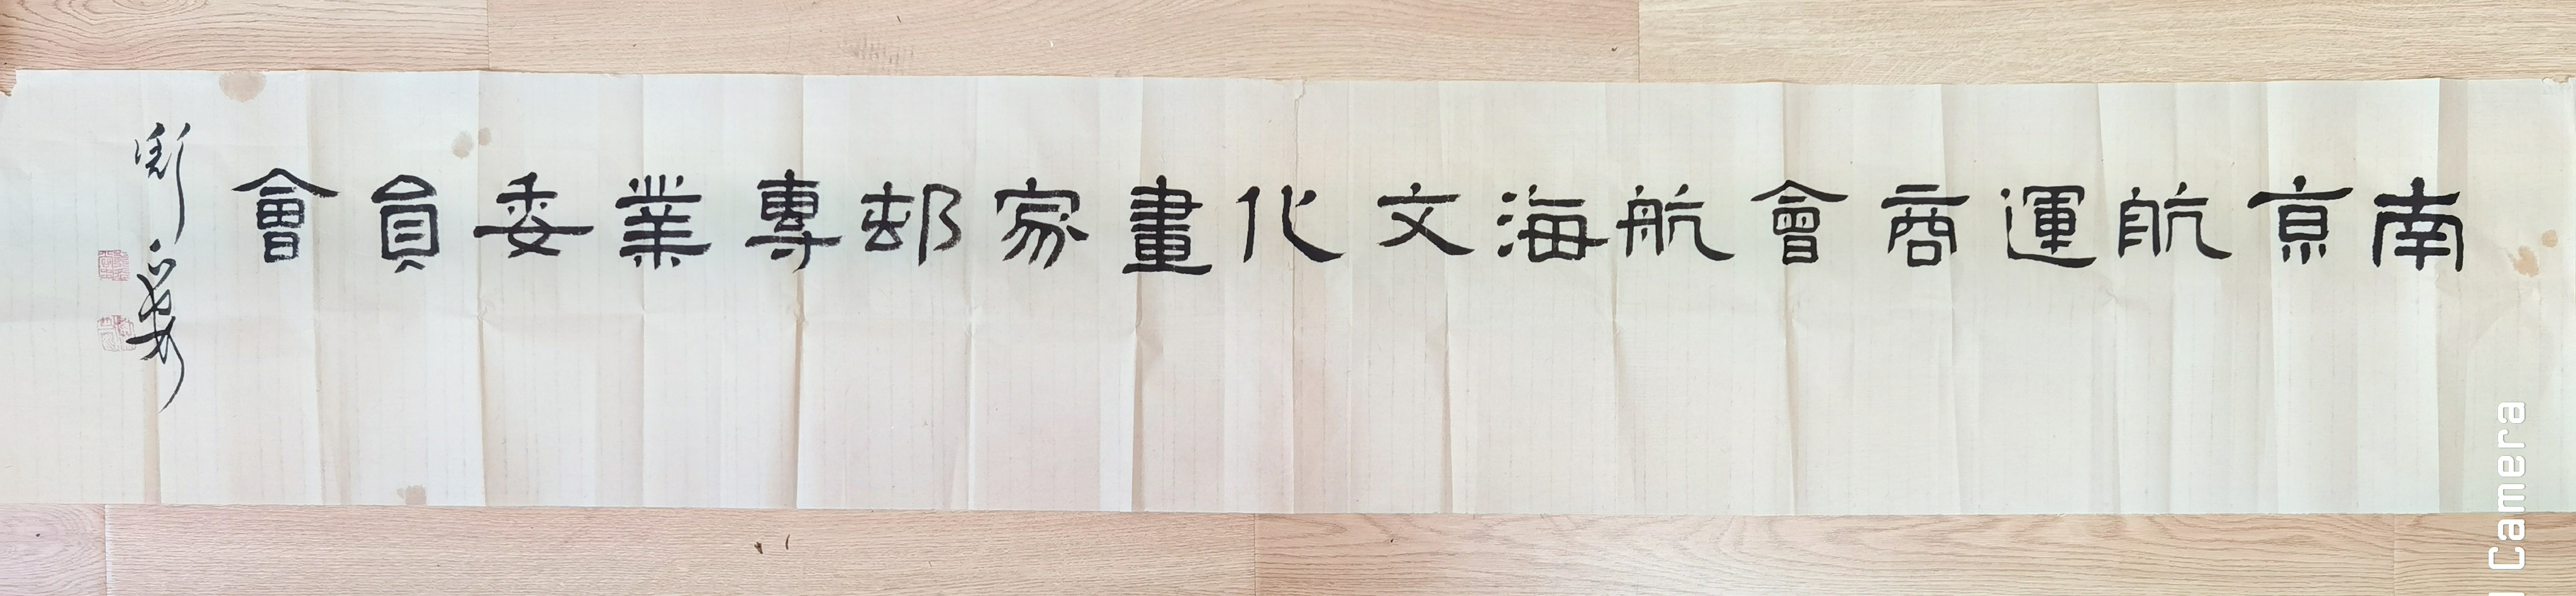 南京航運商會航海文化畫家邨專業委員會
Camera